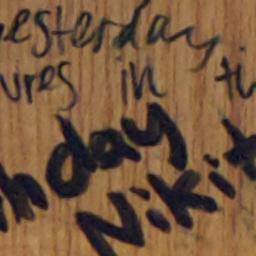 yesterday
ures in ti
hday
Nikit